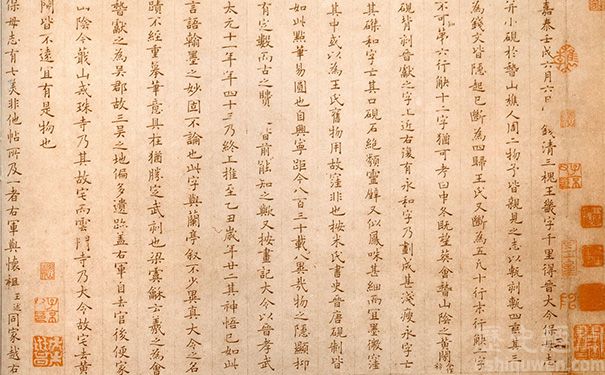 嘉泰壬戌六月六日錢清三槐王畿字千里得晉大令保母志
并小硯於稽山樵人周二物予皆親見之志以甎刻甎四垂其三
為錢文皆隱起已斷為四歸王氏又斷為五凡十行末行缺二字
不可第六行缺十二字猶可考曰中冬既望葬會稽山陰之黃閍
硯背刻晉獻之字上近右復有永和字乃劃成甚淺瘦永字亡
其磔和字亡其口硯石絕類靈壁又似鳳咮甚細而宜墨微窪
其中或以為王氏舊物用故窪非也按米氏書史晉唐硯制皆
如此點筆易圓也自興寧距今八百三十載八興幾物之隱顯抑
有定數而古之賢 日前能知之歟又按畫記大令以晉孝武
太元十一年年四十三乃終上推至乙丑歲年廿二其神悟已如此
言語翰墨之妙固不論也此字與蘭亭敘不少異真大令之名
蹟不經重摹筆意具在猶勝定武刻也梁虞龢云羲之為會
稽獻之為吳郡故三吳之地偏多遺跡蓋右軍自去官後便家
山陰今蕺山戒珠寺乃其故宅而雲門寺乃大令故宅去黃
閍皆不遠宜有是物也
保母志有七美非他帖所及一者右軍與懷祖王述同家越右
shiquwen.com